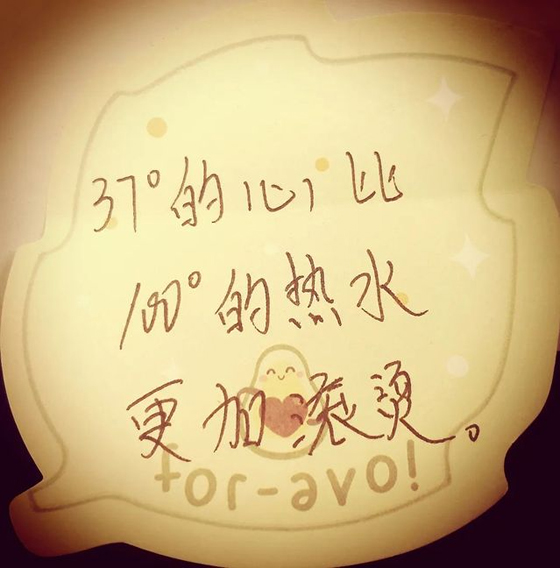 37°的心比
100°的热水
更加滚烫。
for-avo!